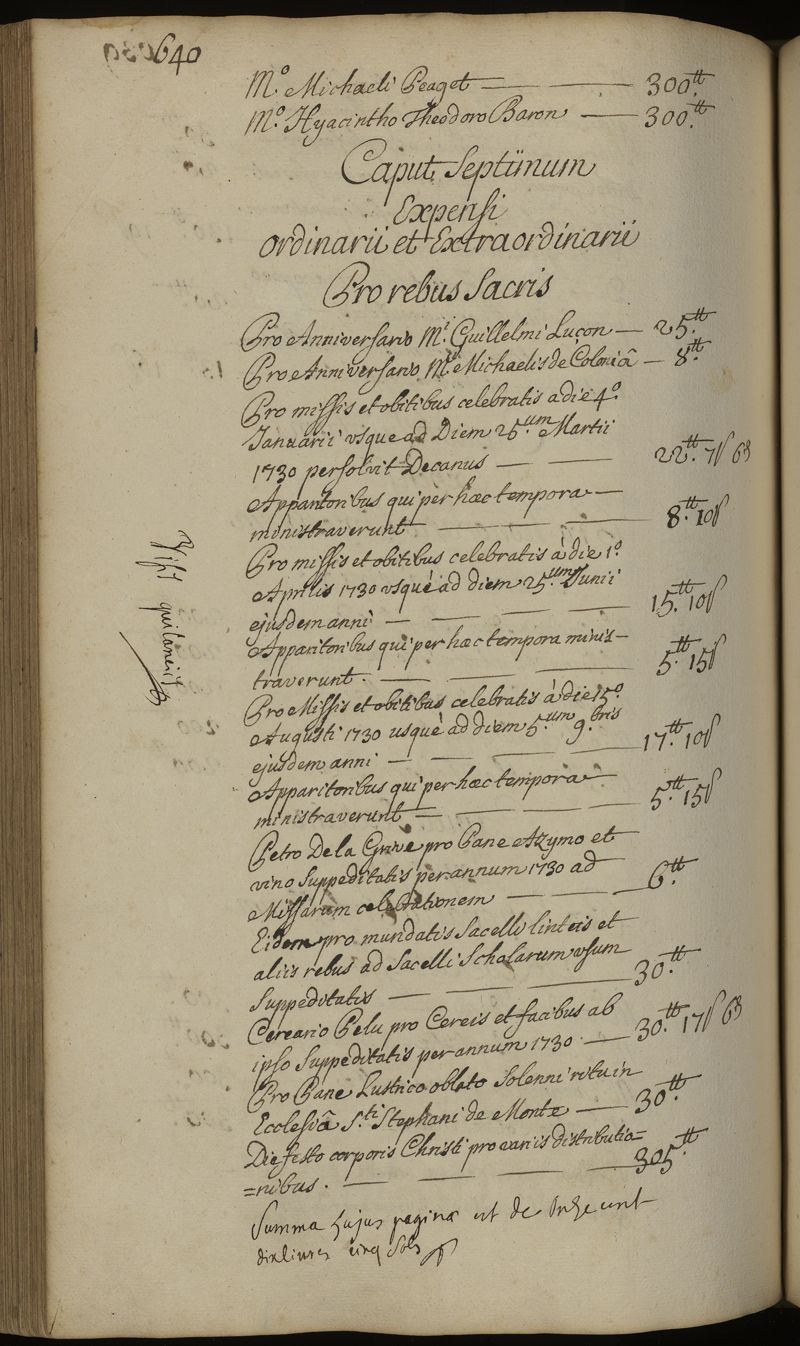 640
M.º Michaeli Peaget — — 300.tt
M.º Hyacintho Theodoro Baron — 300.tt
Caput Septimum
Expensi
ordinarii et Extraordinarii
Pro rebus Sacris
Pro Anniversario M.i Guillelmi Luçon — 25.tt
Pro Anniversario M.i Michaelis de Coloniâ — 8.tt
Pro missis et obitibus celebratis a die 4.º
Januarii vsque ad Diem 25.um Martii
1730 persolvit Decanus — — 22.tt 7ſ 6₰
Apparitoribus qui per hæc tempora —
ministraverunt — — — 8.tt 10ſ
Pro missis et obitibus celebratis à die 1.º
Aprilis 1730 vsquè ad diem 25.um Junii
ejusdem anni — — — 15.tt 10ſ
Apparitoribus qui per hæc tempora minis-
traverunt. — — — 5.tt 15ſ
Pro Missis et obitibus celebratis à die 15.º
Augusti 1730 usquè ad diem 5.um 9.bris
ejusdem anni — — — 17.tt 10ſ
Apparitoribus qui per hæc tempora
ministraverunt — — — 5.tt 15ſ
Petro De la Grive pro Pane Azymo et
vino Suppeditatis per annum 1730 ad
Missarum celebrationem — — 6.tt
Eidem pro mundatis Sacelli linteis et
aliis rebus ad Sacelli Scholarum vsum
Suppeditatis — — — 30.tt
Cereario Pelu pro Cereis et facibus ab
ipso Suppeditatis per annum 1730. — 30.tt 17ſ 6₰
Pro Pane Lustrico oblato Solenni ritu in
Ecclesiâ S.ti Stephani de Monte — 30.tt
Die festo corporis Christi pro variis distributio=
=nibus. — — — 305.tt
Summa hujus paginæ est de onze cent
dix livres cinq sols